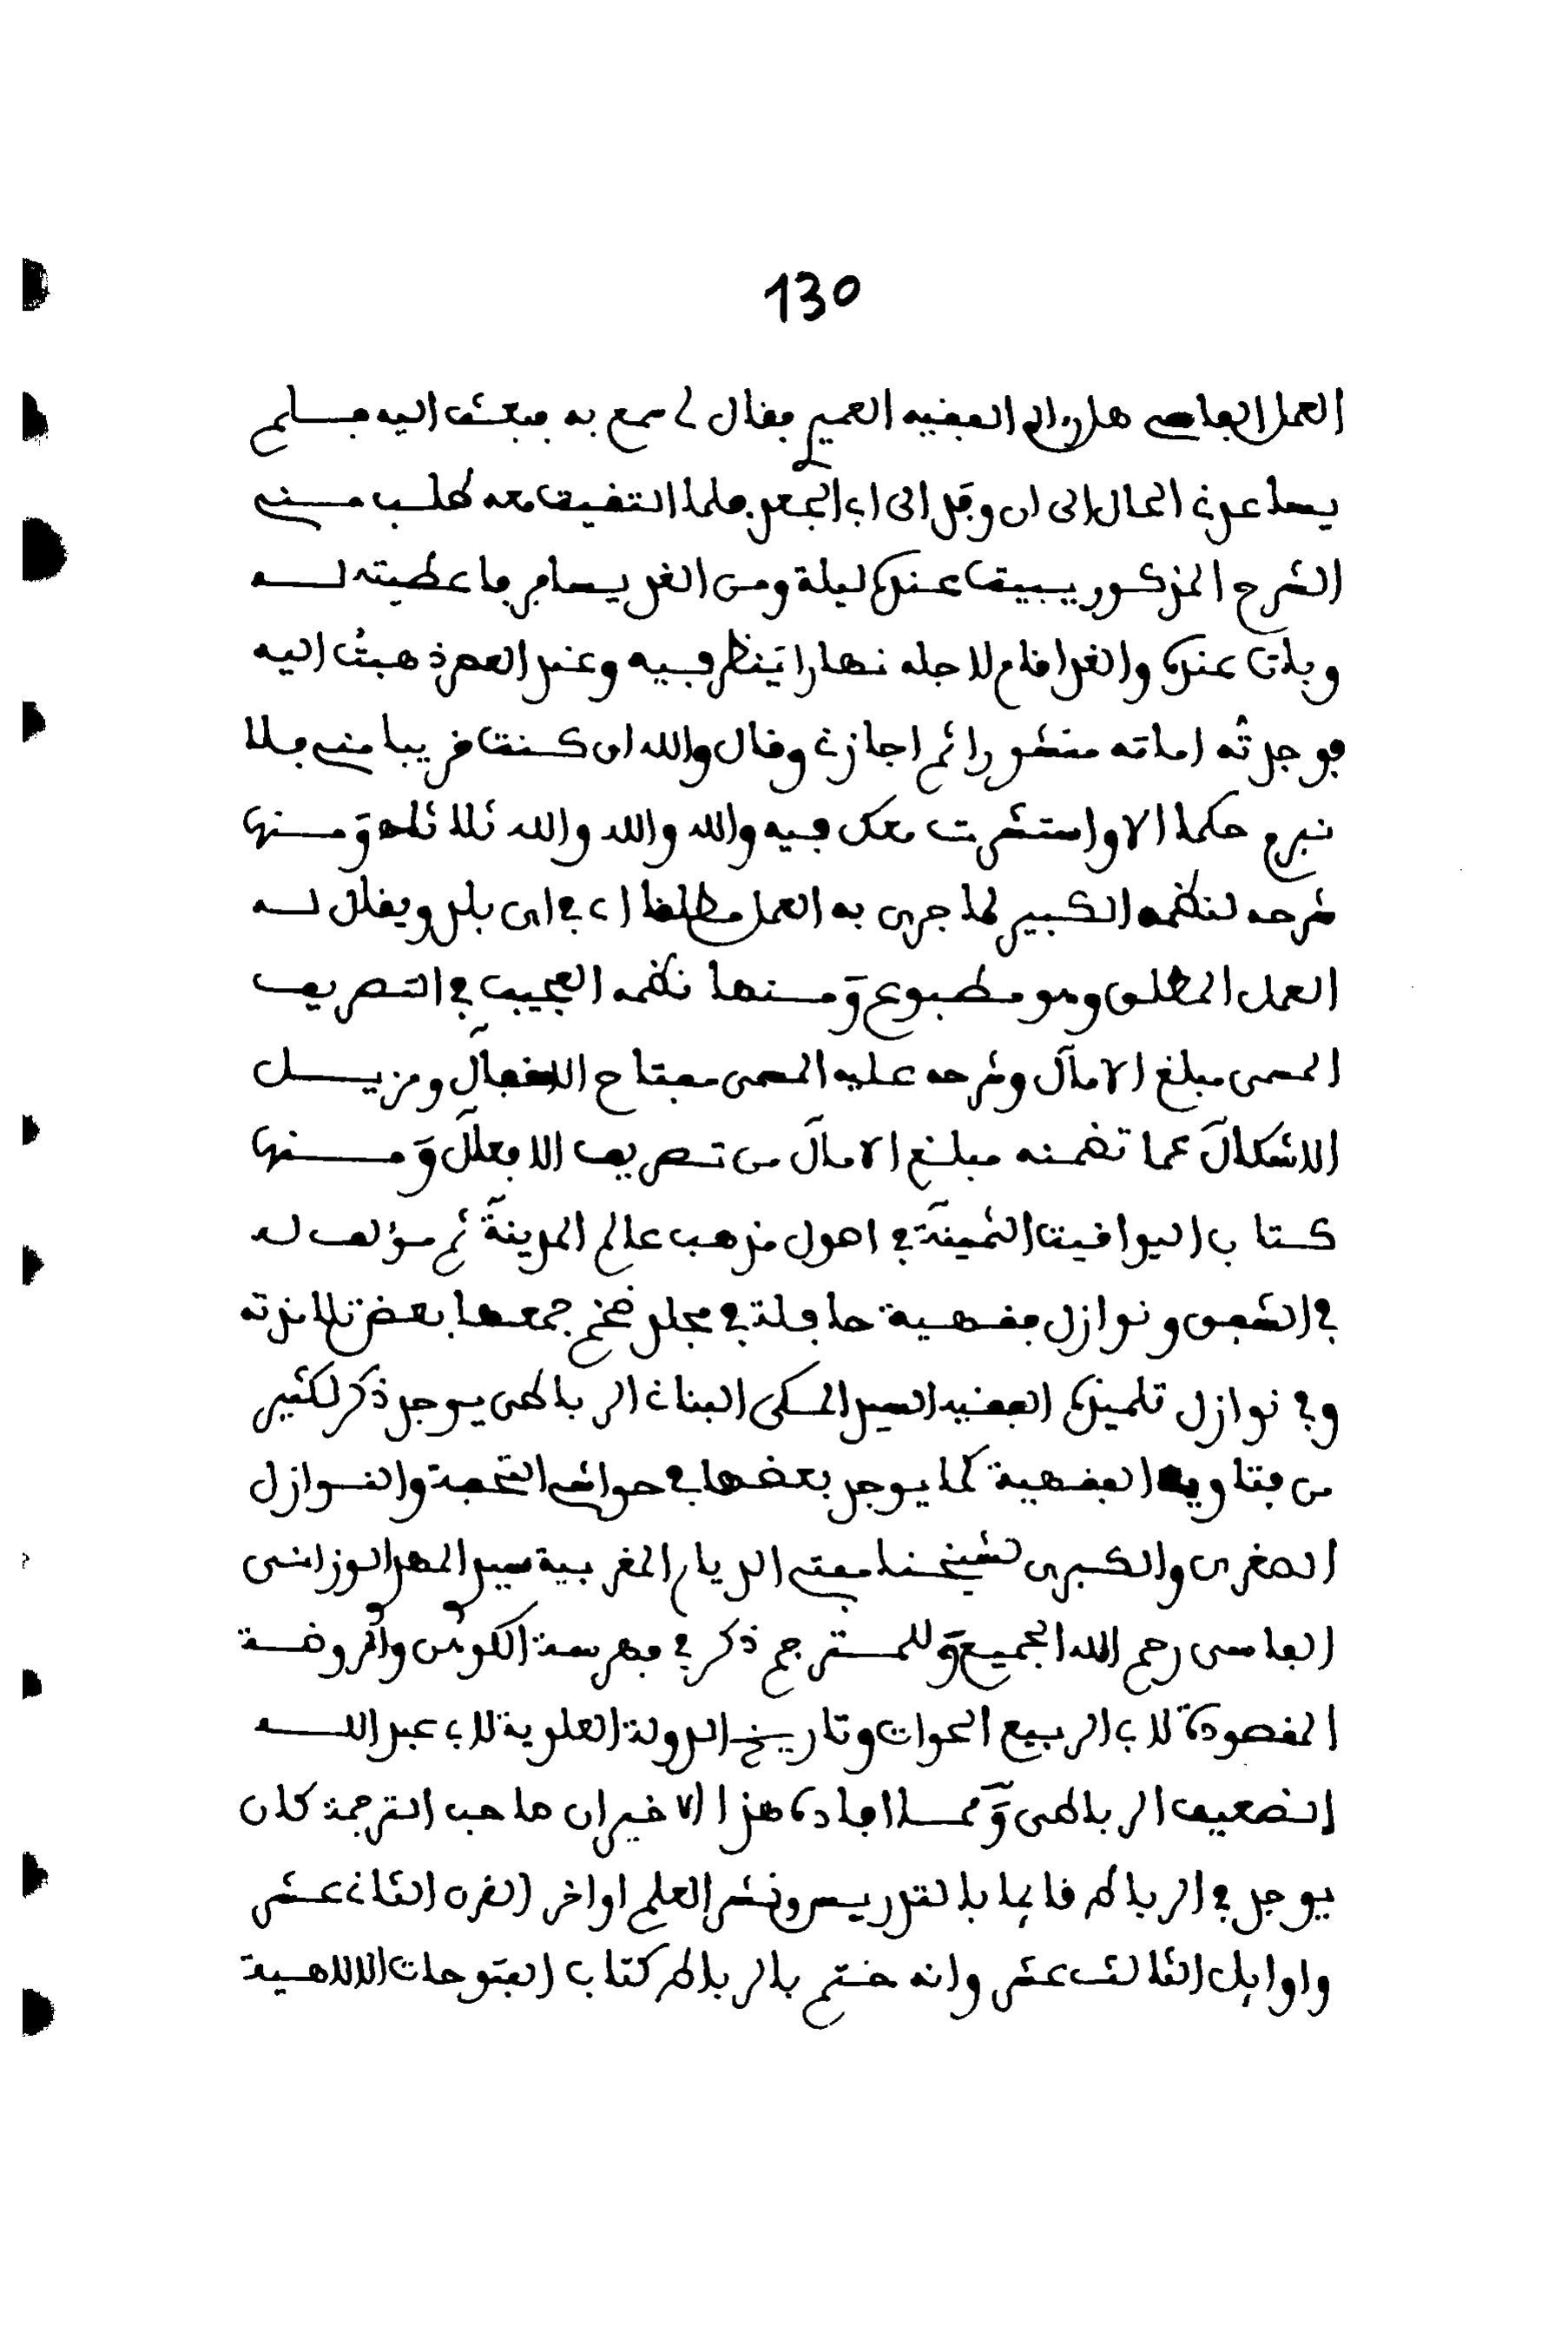 130
العمل الفاسى هل رءاه الفقيه العميرى فقال لى سمع به فبعثت اليه فلم
يساعدنى الحال الى ان وفد الى ابى الجعد فلما التقيت معه طلب منى
الشرح المذكور يبيت عنده ليلة ومن الغد يسافر فاعطيته له
وبات عنده والغد اقام لاجله نهارا ينظر فيه وعند العصر ذهبت اليه
فوجدته امامه منشورا ثم اجازنى وقال والله ان كنت قريبا منى فلا
نبرم حكما الا واستشرت معك فيه والله والله والله ثلاثا ومنها
شرحه لنظمه الكبير لما جرى به العمل مطلقا اى فى اى بلد ويقال له
العمل المطلق وهو مطبوع ومنها نظمه العجيب فى التصريف
المسمى مبلغ الامال وشرحه عليه المسمى مفتاح الاقفال ومزيل
الاشكال عما تضمنه مبلغ الامال من تصريف الافعال ومنها
كتاب اليواقيت الثمينة فى اصول مذهب عالم المدينة ثم مؤلف له
فى الشفق ونوازل فقهية حافلة فى مجلد ضخم جمعها بعض تلامذته
وفى نوازل تلميذه الفقيه السيد المكى البنانى الرباطى يوجد ذكر لكثير
من فتاويه الفقهية كما يوجد بعضها فى حواشى التحفة والنوازل
الصغرى والكبرى لشيخنا مفتى الديار المغربية سيدى المهدى الوزانى
الفاسى رحم الله الجميع وللمترجم ذكر فى فهرسة الكوهن والروضة
المقصودة لابى الربيع الحوات وتاريخ الدولة العلوية لابى عبد الله
الضعيف الرباطى ومما افاده هذا الاخير ان صاحب الترجمة كان
يوجد فى الرباط قائما بالتدريس ونشر العلم اواخر القرن الثانى عشر
واوايل الثالث عشر وانه ختم بالرباط كتاب الفتوحات الالاهية